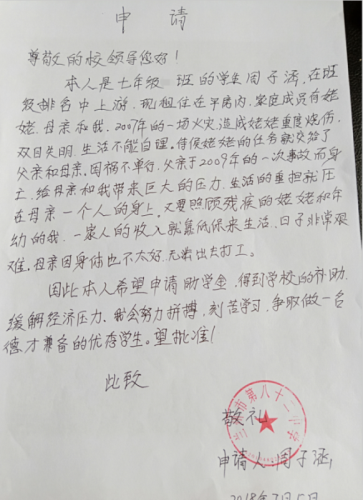 申 请
尊敬的校领导您好！
本人是七年级 班的学生周子涵，在班
级排名中上游，现租住在平房内，家庭成员有姥
姥、母亲和我，2007年的一场火灾造成姥姥重度烧伤，
双目失明，生活不能自理。侍候姥姥的任务就交给了
父亲和母亲。因祸不单行，父亲于2009年的一次事故而身
亡，给母亲和我带来巨大的压力，生活的重担就压
在母亲一个人的身上。又要照顾残疾的姥姥和年
幼的我，一家人的收入就靠低保来生活，日子非常艰
难，母亲因身体也不太好，无法出去打工。
因此本人希望申请助学金，得到学校的补助，
缓解经济压力，我会努力拼搏，刻苦学习，争取做一名
德才兼备的优秀学生。望批准！
此致
敬礼
市第八十二中学
申请人：周子涵
2018年3月5日